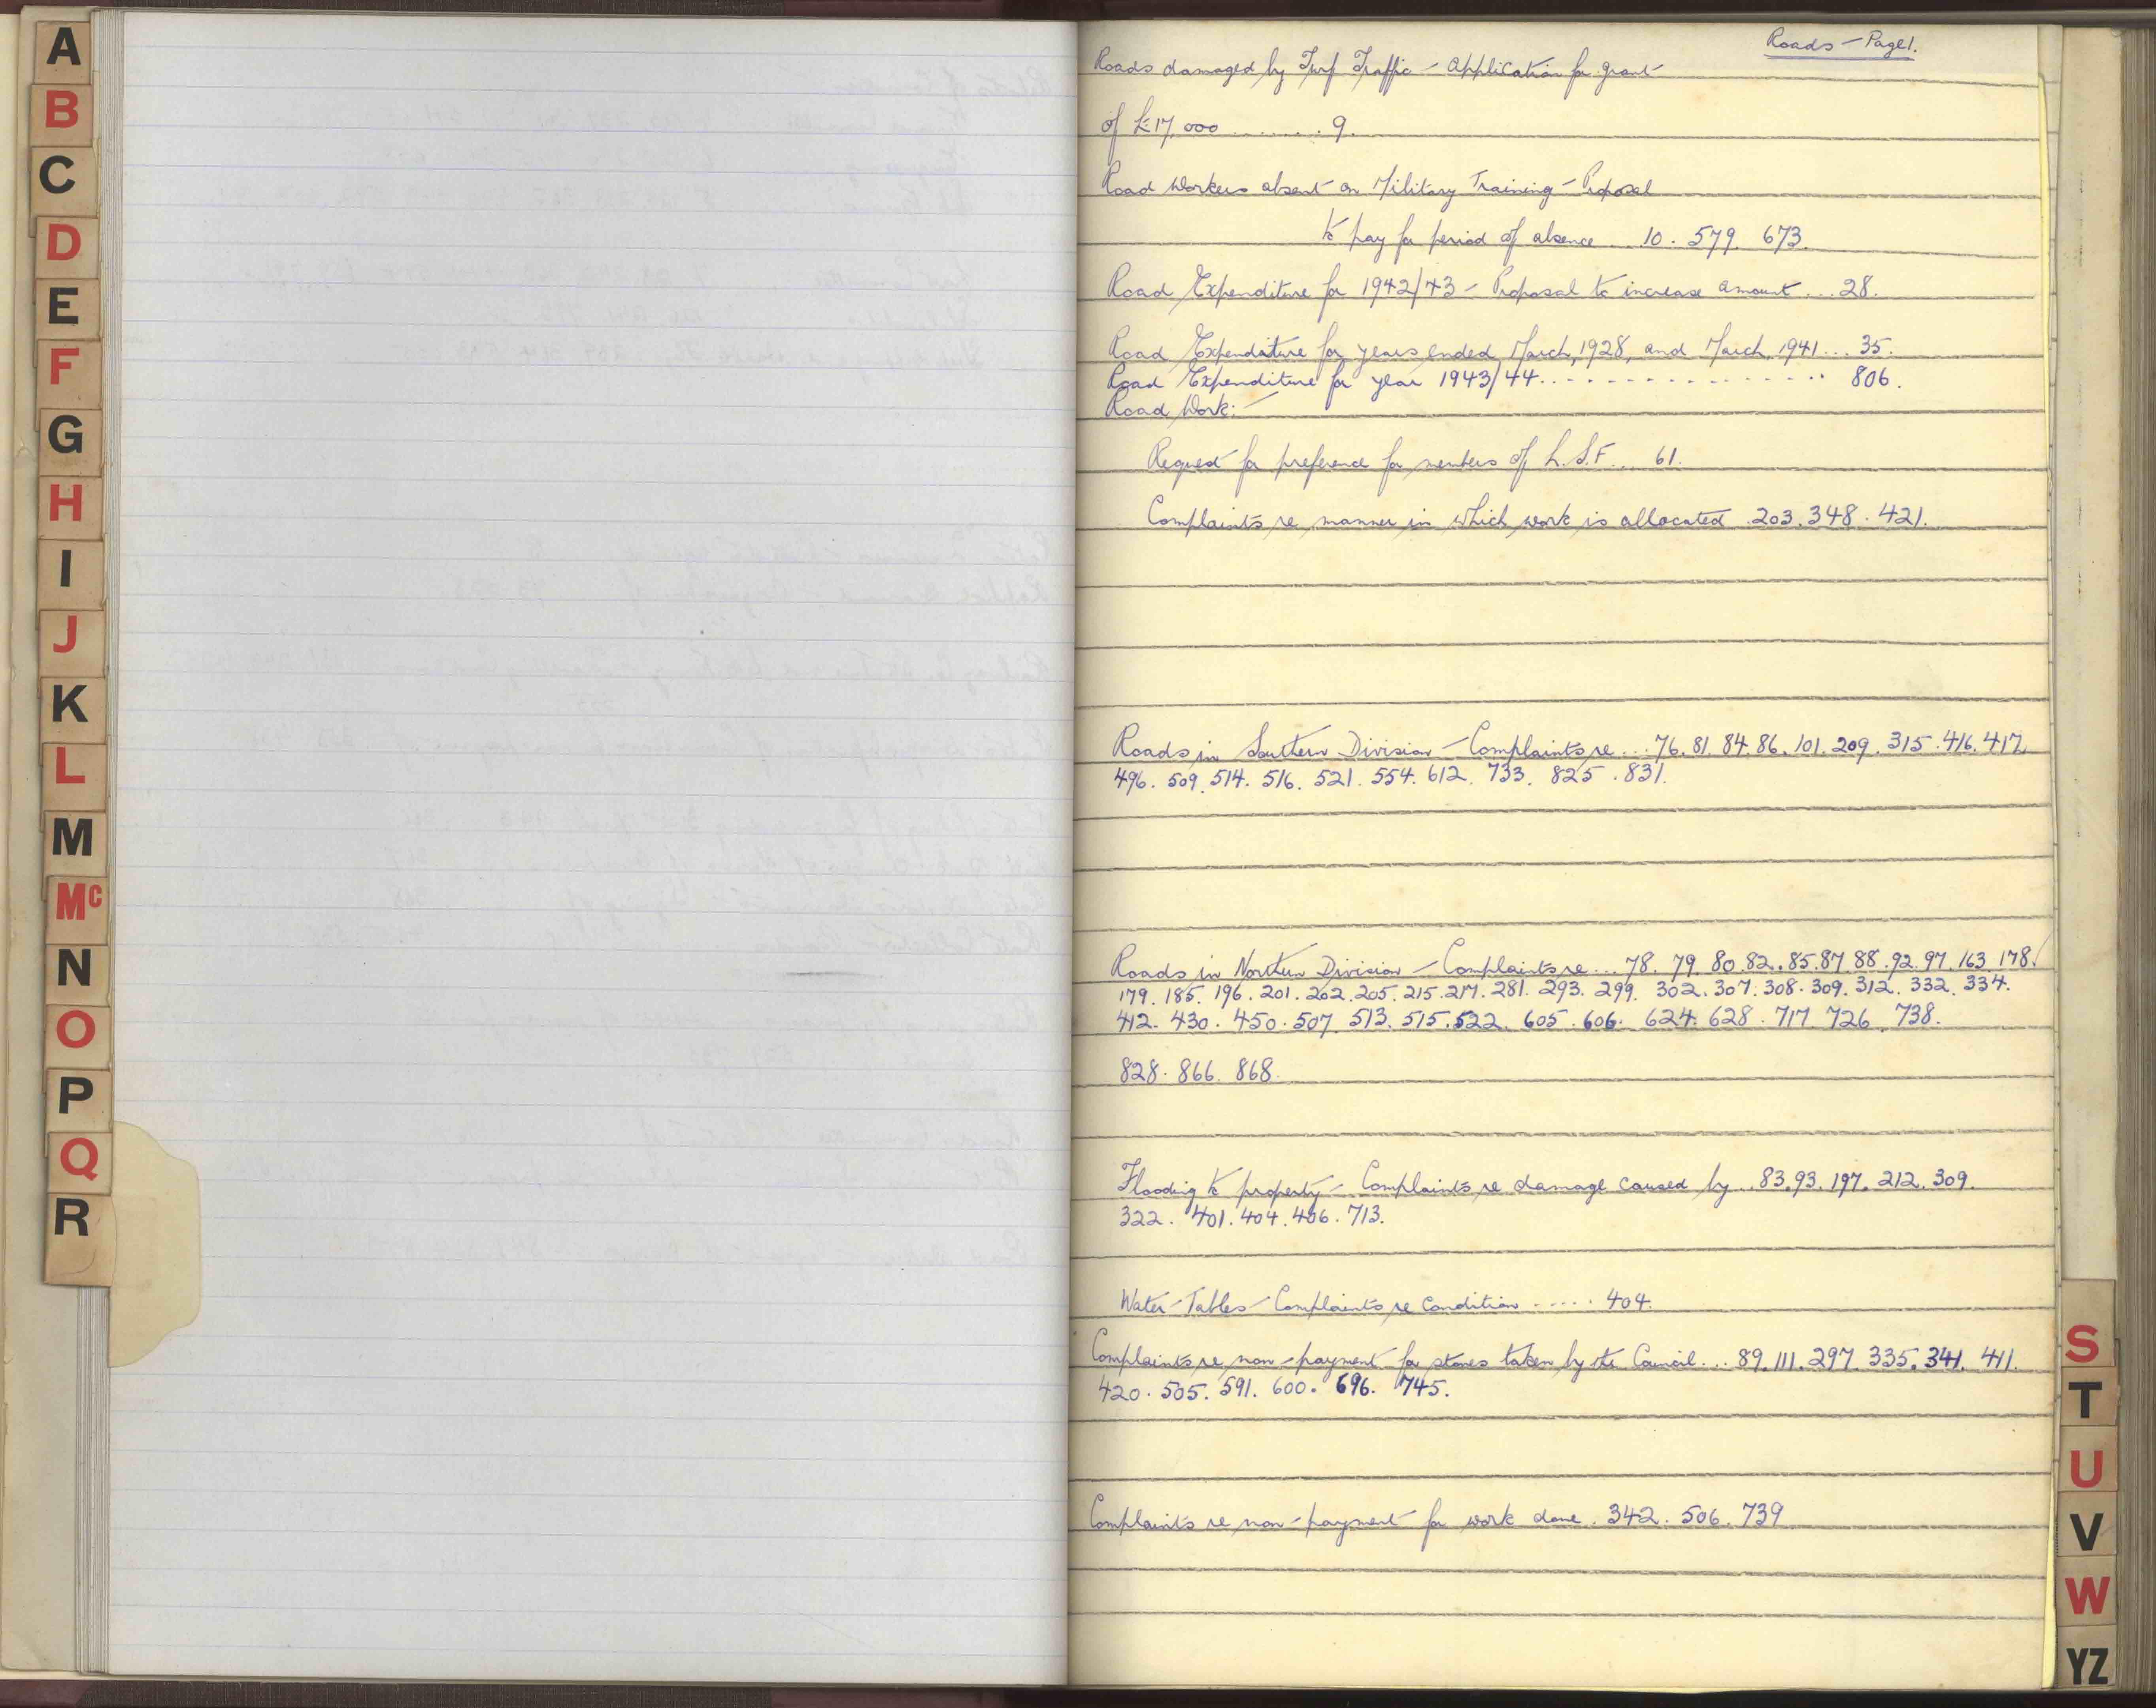 A
B
C
D
E
F
G
H
I
J
K
L
M
Mc
N
O
P
Q
R
Roads - Page 1.
Roads damaged by Turf Traffic - Application for grant
of £17,000 ......... 9.
Road Workers absent on Military Training - Proposal
to pay for period of absence ... 10. 579. 673.
Road Expenditure for 1942/43 - Proposal to increase amount ... 28.
Road Expenditure for years ended March, 1928, and March, 1941 ... 35.
Road Expenditure for year 1943/44 ................ 806.
Road Work: -
Request for preference for members of L.S.F. ... 61.
Complaints re manner in which work is allocated 203. 348. 421.
Roads in Southern Division - Complaints re ... 76. 81. 84. 86. 101. 209. 315. 416. 417.
496. 509. 514. 516. 521. 554. 612. 733. 825. 831.
Roads in Northern Division - Complaints re ... 78. 79. 80. 82. 85. 87. 88. 92. 97. 163. 178.
179. 185. 196. 201. 202. 205. 215. 217. 281. 293. 299. 302. 307. 308. 309. 312. 332. 334.
412. 430. 450. 507. 513. 515. 522. 605. 606. 624. 628. 717. 726. 738.
828. 866. 868.
Flooding to property - Complaints re damage caused by ... 83. 93. 197. 212. 309.
322. 401. 404. 406. 713.
Water-Tables - Complaints re condition ..... 404.
Complaints re non-payment for stones taken by the Council ... 89. 111. 297. 335. 341. 411.
420. 505. 591. 600. 696. 745.
Complaints re non-payment for work done. 342. 506. 739
S
T
U
V
W
YZ